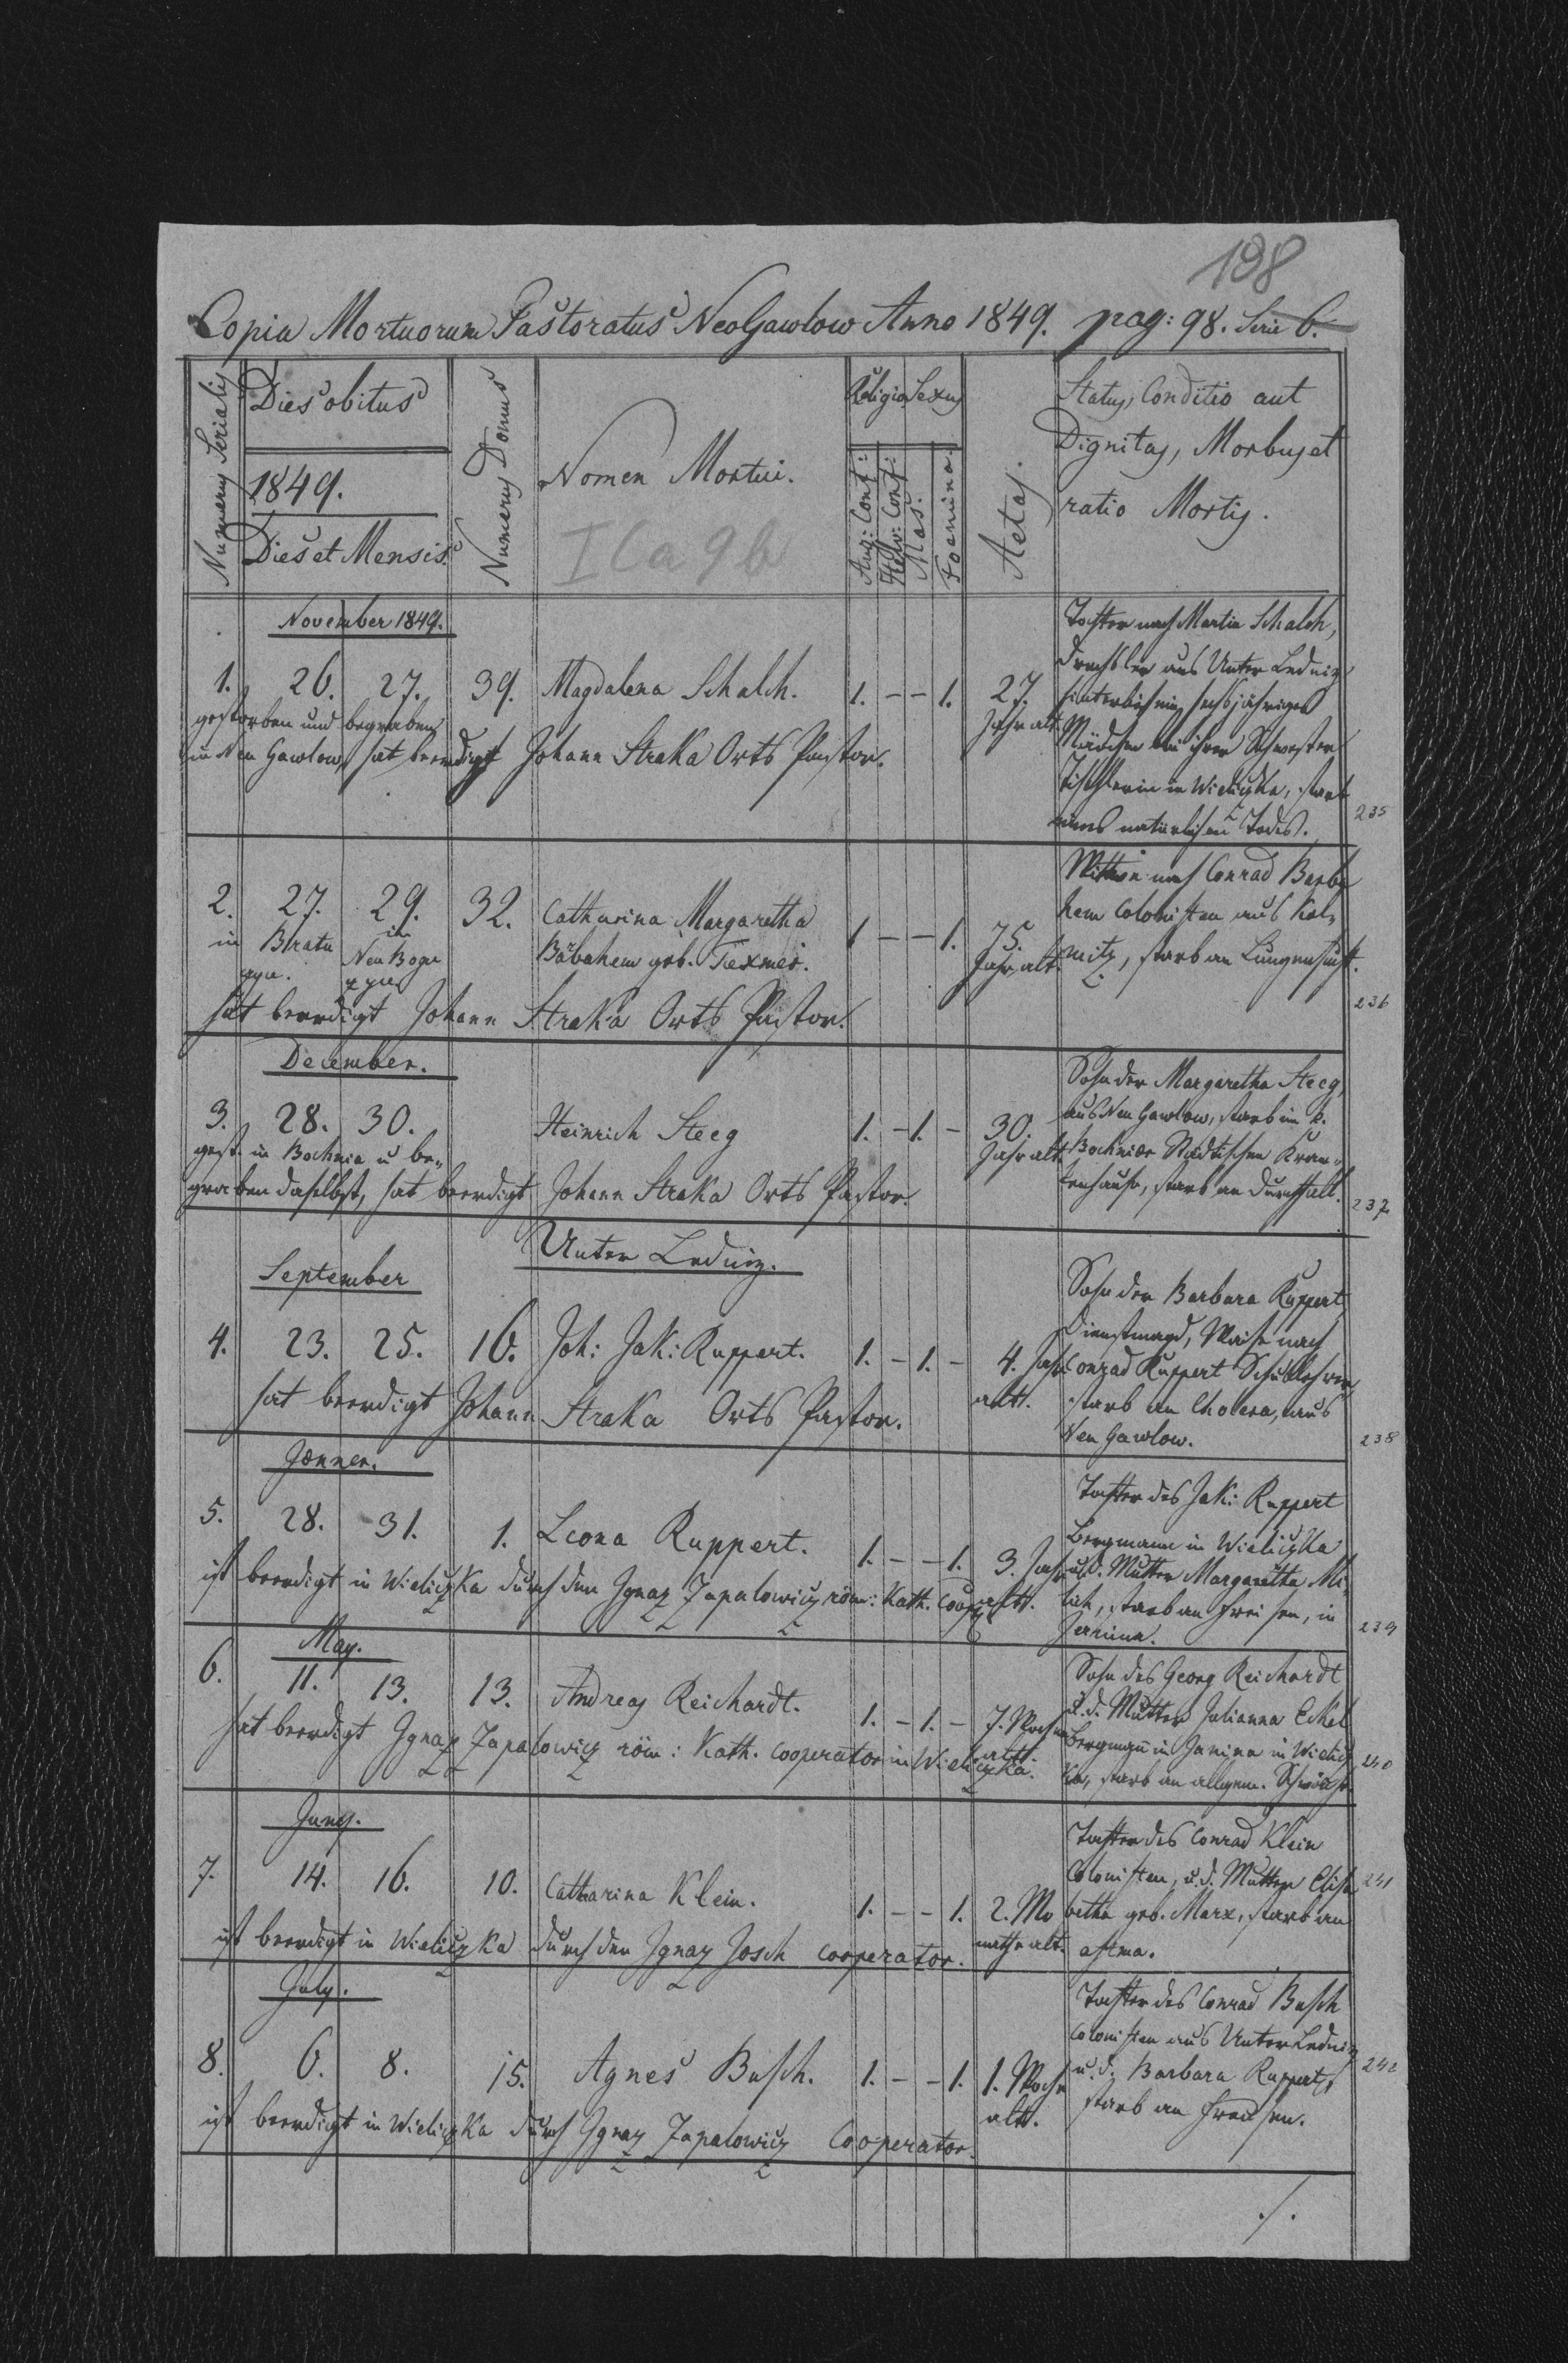 198
Copia Mortuorum Pastoratus NeoGawlow Anno 1849. pag: 98. Serie 6.
Numerus Serialis
Dies obitus
1849.
Dies et Mensis.
Numerus Domus
Nomen Mortui.
I Ca 9 b
Religio
Sexus
Aug: Conf:
Helv: Conf:
Mas.
Foemina.
Aetas.
Status, Conditio aut
Dignitas, Morbus et
ratio Mortis.
November 1849.
1. 26. 27. 39. Magdalena Schalch. 1. - - 1. 27. Jahr alt.
gestorben und begraben
in Neu Gawlow, hat beerdigt Johann Straka Orts Pastor.
Tochter nach Martin Schalch,
Drechsler aus Unter Lednig
hinterließ ein sechsjähriges
Mädchen bei ihrer Schwester
Tischlerin in Wieliczka, starb
eines natürlichen Todes.
235
2. 27. 29. 32. Catharina Margaretha
in in Neu
Bäbahem geb. Texmei. 1 - - 1. 75. Jahr alt.
hat beerdigt Johann Straka Orts Pastor.
Wittwe nach Conrad Barba
hem Colonisten aus Kol
nitz, starb an Lungensucht.
236
December.
3. 28. 30. Heinrich Steeg 1. - 1. - 30. Jahr alt.
gest. in Bochnia u be-
graben daselbst, hat beerdigt Johann Straka Orts Pastor.
Sohn der Margaretha Steeg,
aus Neu Gawlow, starb im k.
Bochnier Städtischen Kran-
kenhause, starb an Durchfall.
237
Unter Lednig.
September
4. 23. 25. 16. Joh: Jak: Ruppert. 1. - 1. - 4. Jahr alt.
hat beerdigt Johann Straka Orts Pastor.
Sohn der Barbara Ruppert
Dienstmagd, Waise nach
Conrad Ruppert Schullehrer,
starb an Cholera, aus
Neu Gawlow.
238
Jänner.
5. 28. 31. 1. Leona Ruppert. 1. - - 1. 3. Jahr alt.
ist beerdigt in Wieliczka durch den Ignaz Zapalowicz röm: Kath. Coop
Tochter des Jak: Ruppert
Bergmann in Wieliczka
u. d. Mutter Margaretha Mi
lich, starb an Freisen, in
Janina.
239
May.
6. 11. 13. 13. Andreas Reichardt. 1. - 1. - 7. Wochen alt.
hat beerdigt Ignaz Zapalowicz röm: Kath. Cooperator in Wieliczka.
Sohn des Georg Reichardt
u. d. Mutter Julianna Eckel
Bergman in Janina in Wielicz
ka, starb an allgem. Schwäche
240
Juny.
7. 14. 16. 10. Catharina Klein. 1. - - 1. 2. Mo
nathe alt.
ist beerdigt in Wieliczka durch den Ignaz Josch Cooperator.
Tochter des Conrad Klein
Colonisten, u. d. Mutter Elisa
betha geb. Marx, starb an
astma.
241
July.
8. 6. 8. 15. Agnes Busch. 1. - - 1. 1. Woche alt.
ist beerdigt in Wieliczka durch Ignaz Zapalowicz Cooperator.
Tochter des Conrad Busch
Colonisten aus Unter Lednig
u. d. Barbara Ruppert,
starb an Freisen.
242
./.